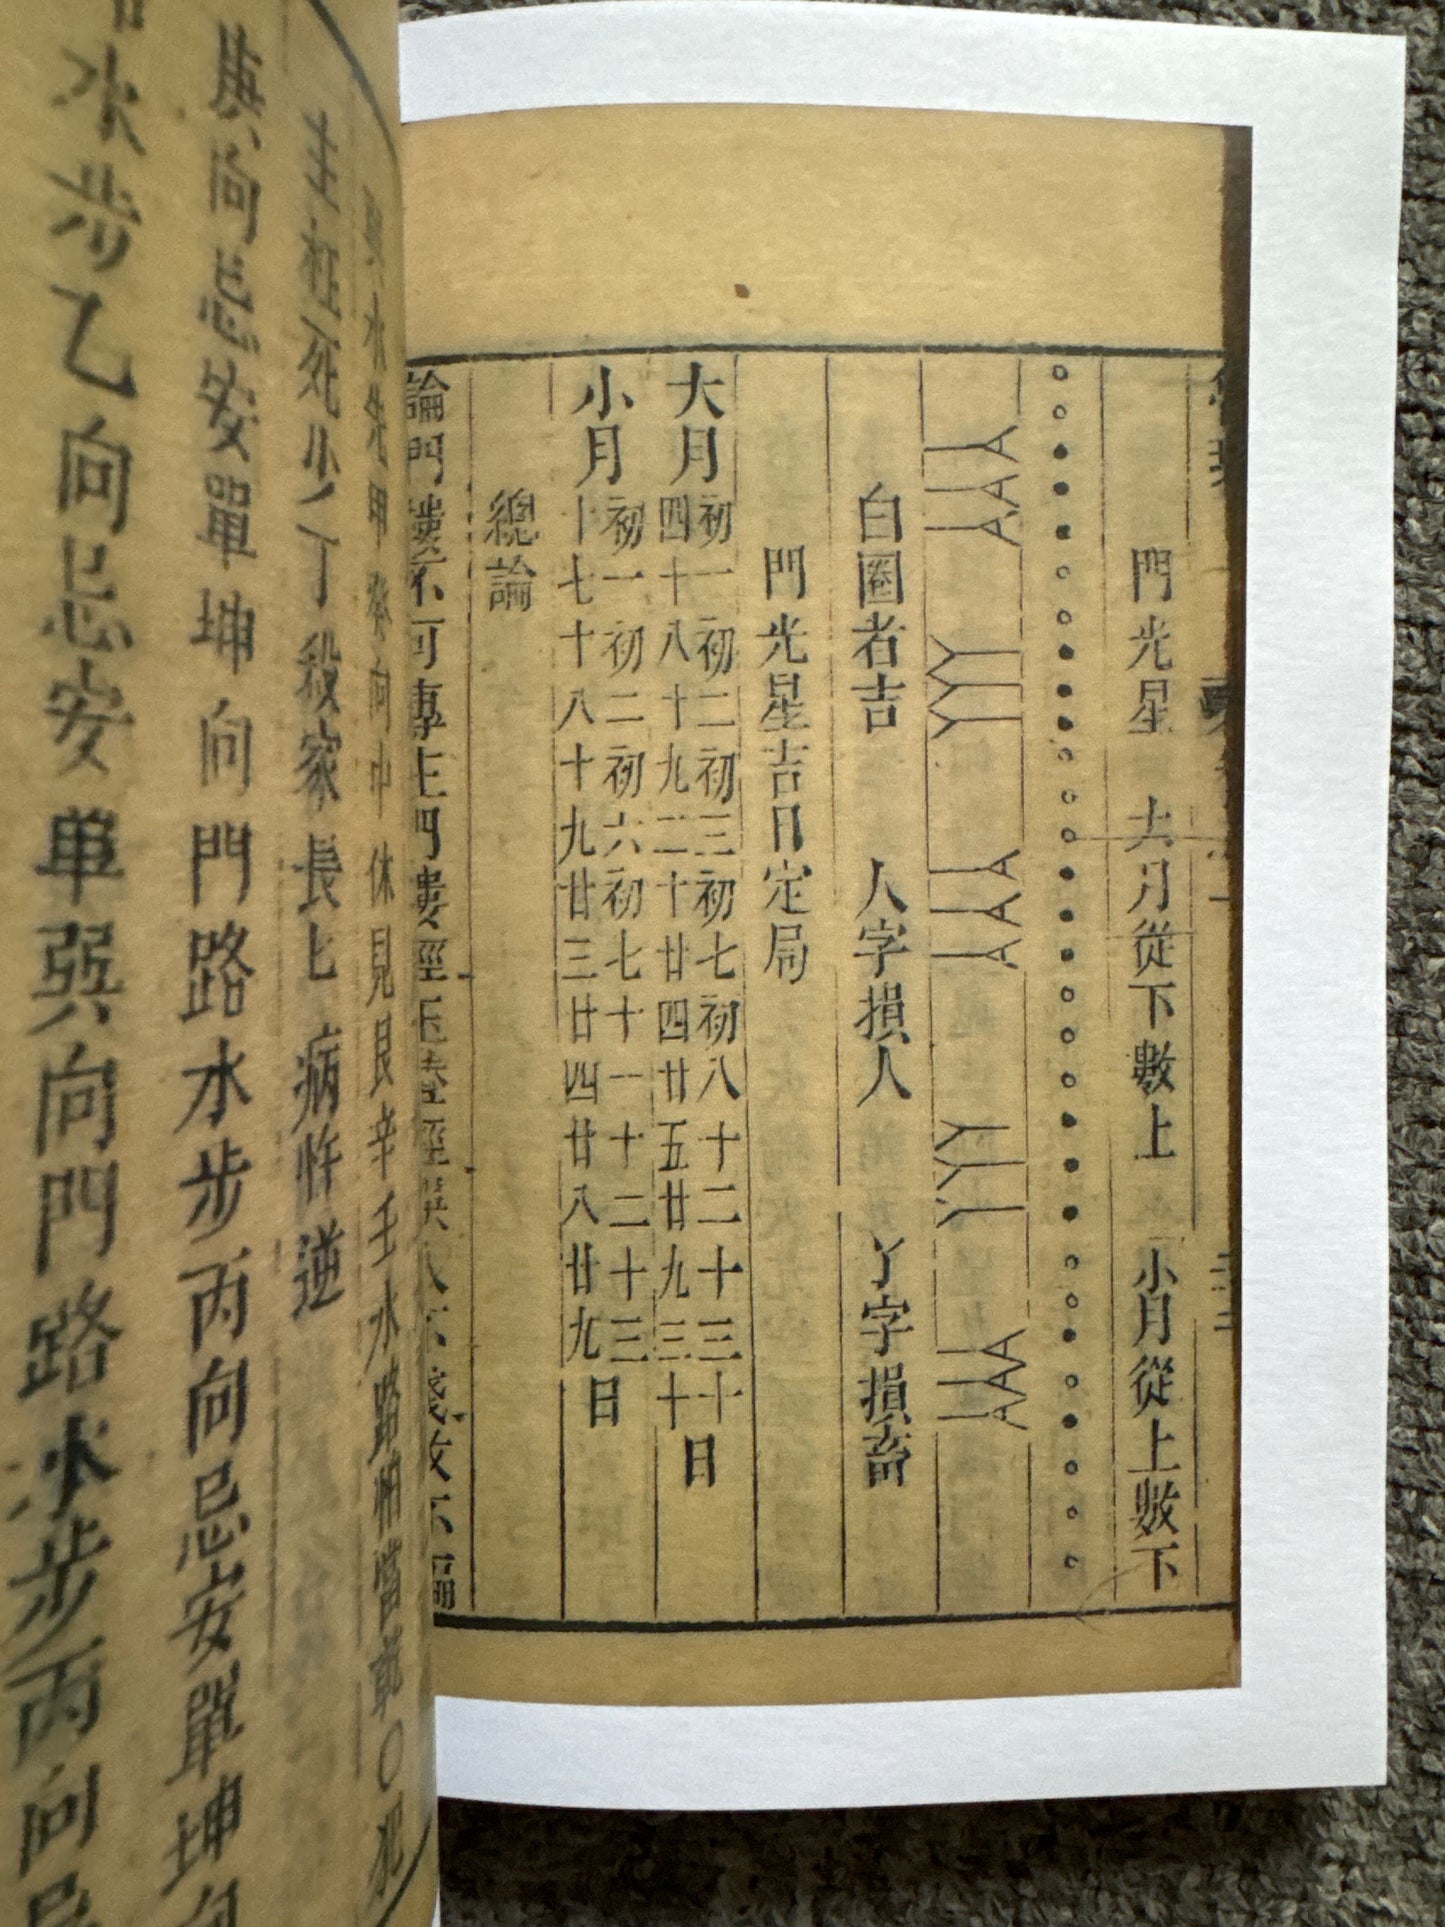 門光星 大月從下數上 小月從上數下
白圈者吉 人字損人 丫字損畜
門光星吉日定局
大月 初一初二初三初七初八十二十三十四十八十九二十廿四廿五廿九三十日
小月 初一初二初六初七十一十二十三十七十八十九廿三廿四廿八廿九日
總論
論門樓不可專主門樓經玉輦經誤人不淺故不編
水先甲癸向中休見艮辛壬水路怕當乾○犯
主枉死少丁殺家長七病忤逆
庚向忌安單坤向門路水步丙向忌安單坤
水步乙向忌安單巽向門路水步丙向